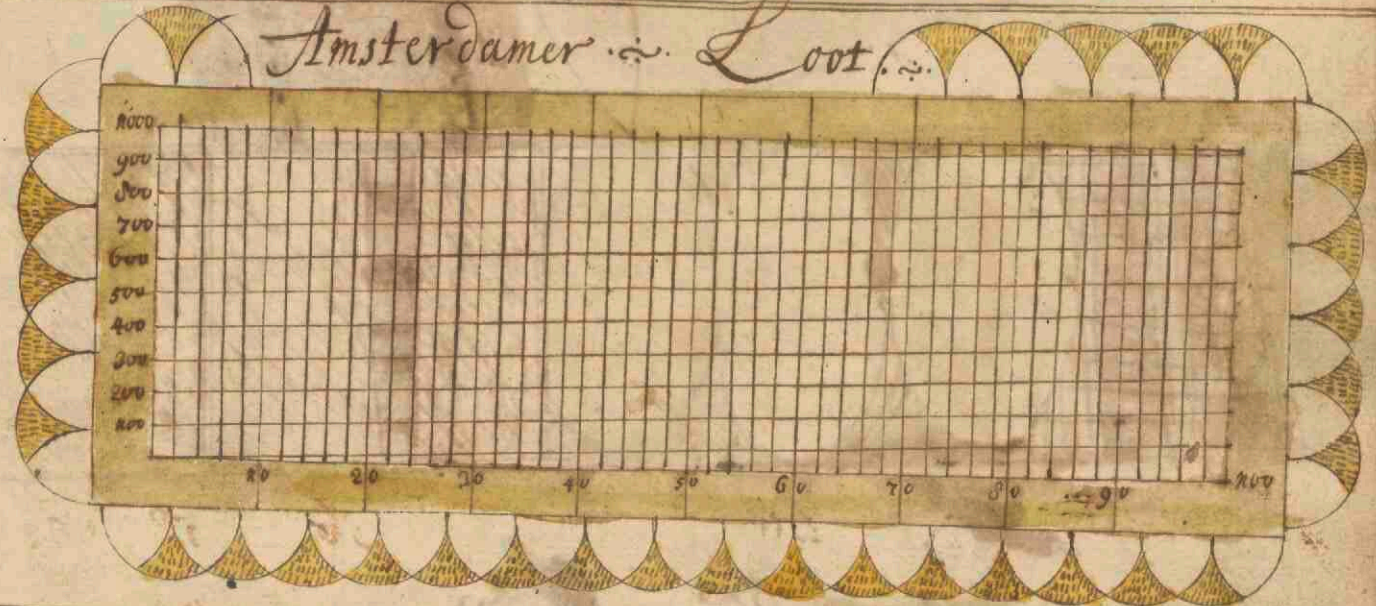 Amsterdamer Loot
1000
900
800
700
600
500
400
300
200
100
10 20 30 40 50 60 70 80 90 100